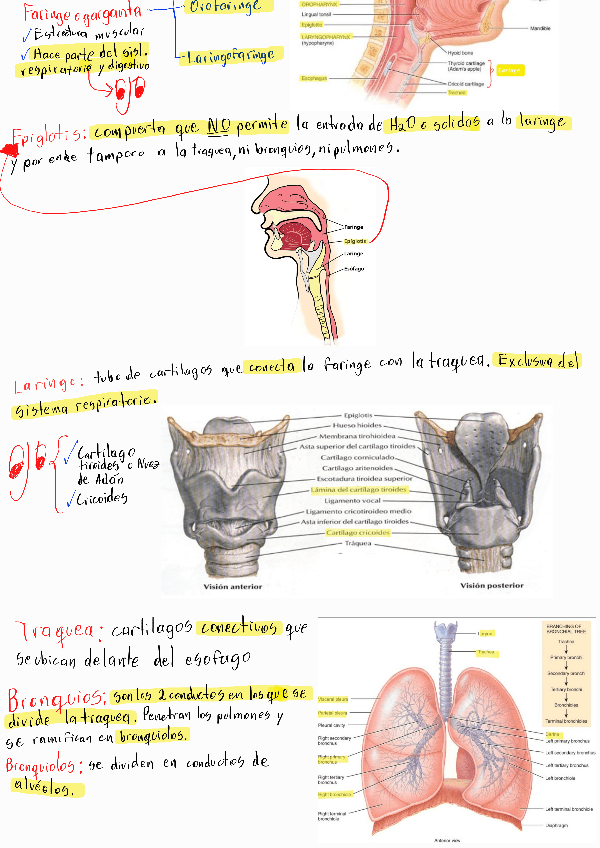 Orofaringe
Faringe o garganta
✓ Estructura muscular
✓ Hace parte del sist.
respiratorio y digestivo
Laringofaringe
OROPHARYNX
Lingual tonsil
Epiglottis
LARYNGOPHARYNX
(hypopharynx)
Esophagus
Mandible
Hyoid bone
Thyroid cartilage
(Adam's apple)
Cricoid cartilage
Trachea
Epiglotis: compuerta que NO permite la entrada de H2O o solidos a la laringe
y por ende tampoco a la traquea, ni bronquios, ni pulmones.
Faringe
Epiglotis
Laringe
Esófago
Laringe: tubo de cartilagos que conecta la faringe con la traquea. Exclusiva del
sistema respiratorio.
✓ Cartilago
tiroides o Nuez
de Adán
✓ Cricoides
Epiglotis
Hueso hioides
Membrana tirohioidea
Asta superior del cartílago tiroides
Cartílago corniculado
Cartílago aritenoides
Escotadura tiroidea superior
Lámina del cartílago tiroides
Ligamento vocal
Ligamento cricotiroideo medio
Asta inferior del cartílago tiroides
Cartílago cricoides
Tráquea
Visión anterior
Visión posterior
Traquea: cartilagos conectivos que
se ubican delante del esofago
Bronquios: son los 2 conductos en los que se
divide la traquea. Penetran los pulmones y
se ramifican en bronquiolos.
Bronquiolos: se dividen en conductos de
alvéolos.
Larynx
Trachea
Visceral pleura
Parietal pleura
Pleural cavity
Right secondary
bronchus
Right primary
bronchus
Right tertiary
bronchus
Right bronchiole
Right terminal
bronchiole
BRANCHING OF
BRONCHIAL TREE
Trachea
Primary bronchi
Secondary bronchi
Tertiary bronchi
Bronchioles
Terminal bronchioles
Carina
Left primary bronchus
Left secondary bronchus
Left tertiary bronchus
Left bronchiole
Left terminal bronchiole
Diaphragm
Anterior view